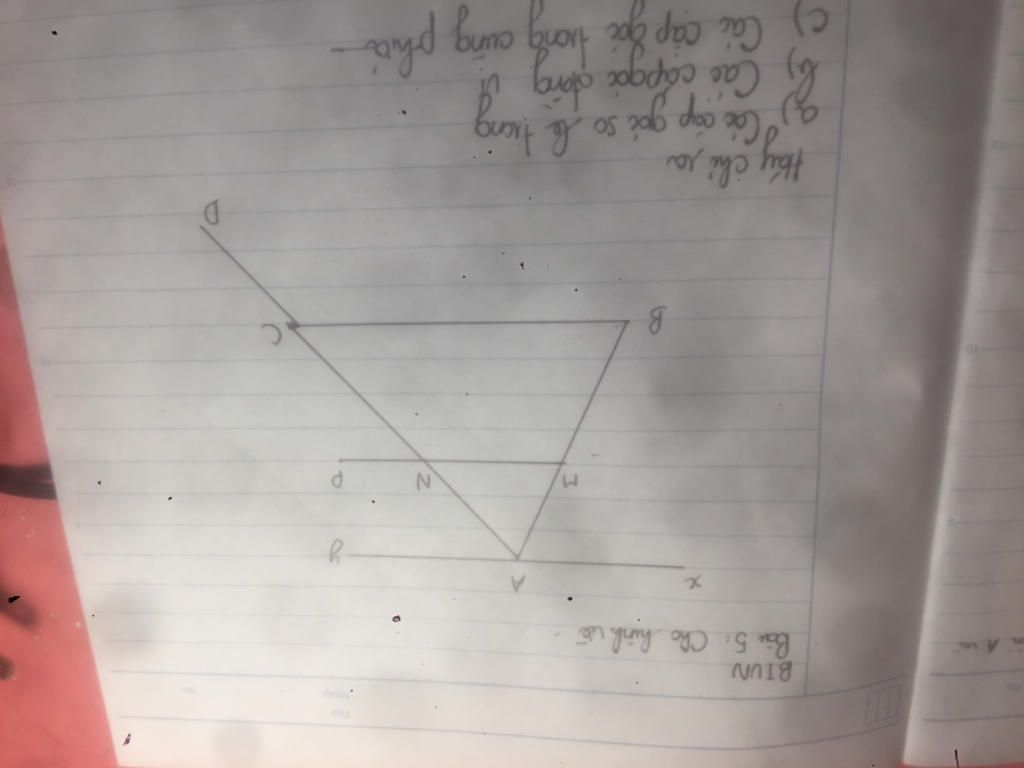 BTVN
Bài 5: Cho hình vẽ
x
A
y
M
N
P
B
C
D
Hãy chỉ ra
a) Các cặp góc so le trong
b) Các cặp góc đồng vị
c) Các cặp góc trong cùng phía